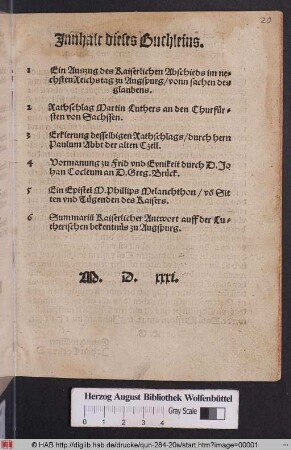 20
Innhalt dieses Buchleins.
1 Ein Auszug des Kaiserlichen Abschieds im ne-
chsten Reichstag zu Augspurg / vonn sachen des
glaubens.
2 Rathschlag Martin Luthers an den Churfür-
sten von Sachssen.
3 Erklerung desselbigen Rathschlags / durch hern
Paulum Abbt der alten Czell.
4 Vormanung zu Frid vnd Eynikeit durch D. Jo
han Cocleum an D. Greg. Brück.
5 Ein Epistel M. Philips Melanchthon / vō Sit
ten vnd Tügenden des Kaisers.
6 Summariū Kaiserlicher Antwort auff der Lu-
therischen bekentnüs zu Augspurg.
M. D. xxxi.
Herzog August Bibliothek Wolfenbüttel
4 Gray Scale
© HAB http://diglib.hab.de/drucke/qun-284-20e/start.htm?image=00001